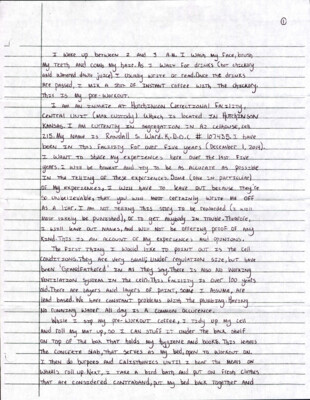 ①
I wake up between 2 and 3 A.M. I wash my face, brush
my teeth and comb my hair. As I wait for drinks (hot chickory
and watered down juice) I usually write or read. Once the drinks
are passed, I mix a shot of instant coffee with the chickory.
This is my pre-workout.
I am an inmate at Hutchinson Correctional Facility,
Central Unit (max custody) which is located in Hutchinson
Kansas. I am currently in segregation in A2 cellhouse, cell
218. My name is Randall S. Ward K.D.O.C. # I
been in this facility for over five years (December 1, 2014).
I want to share my experiences here over the last five
years. I will be honest and try to be as accurate as possible
in the telling of these experiences. Some (one in particular)
of my experiences, I will have to leave out because they're
so unbelievable, that you will most certainly write me off
as a liar. I am not telling this story to be punished (I will
most surely be punished), or to get anybody in trouble. Therefore,
I will leave out names, and will not be offering proof of any
kind. This is an account of my experiences and opinions.
The first thing I would like to point out is the cell
conditions. They are very small, under regulation size, but have
been "Grandfathered" in as they say. There is also no working
ventilation system in the cell. This facility is over 100 years
old. There are layers and layers of paint, some I assume, are
lead based. We have constant problems with the plumbing. Having
no running water all day is a common occurence.
While I sip my pre-workout coffee, I tidy up my cell
and roll my mat up, so I can stuff it under the back shelf
on top of the box that holds my hygiene and books. This leaves
the concrete slab, that serves as my bed, open to workout on.
I then do burpees and calesthenics until I hear the meals on
wheels roll up. Next, I take a bird bath, and put on fresh clothes
that are considered contraband, put my bed back together and